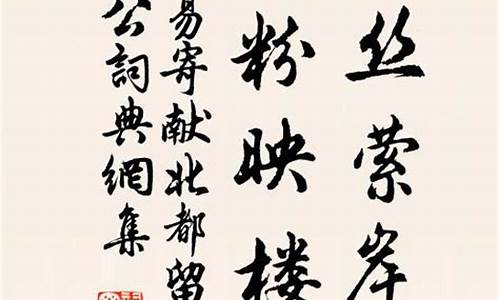 丝萦岸
粉映楼
易寄献北都留
公詞典網集